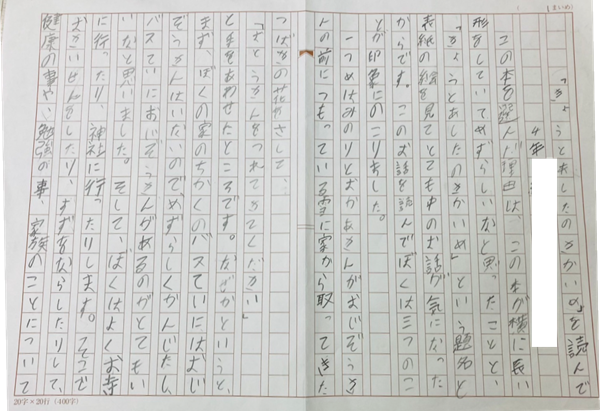 (1まいめ)
「きょうとあしたのさかいめ」を読んで
4年
この本を選んだ理由は、この本が横に長い
形をしていてめずらしいなと思ったことと、
「きょうとあしたのさかいめ」という題名と
表紙の絵を見てとても中のお話が気になった
からです。このお話を読んでぼくは三つのこ
とが印象にのこりました。
一つめはみのりとおかあさんがおじぞうさ
んの前につもっている雪に家から取ってきた
つばきの花がさして、
「さとうさんをつれてきてください」
と手をあわせたところです。なぜかというと、
まず、ぼくの家のちかくのバスていにはおじ
ぞうさんはいないのでめずらしくかんじたし、
バスていにおじぞうさんがあるのがとてもい
いなと思いました。そして、ぼくはよくお寺
に行ったり、神社に行ったりします。そこで
おさいせんをしたり、すずをならしたりして、
健康の事や、勉強の事、家族のことについて
20字×20行(400字)